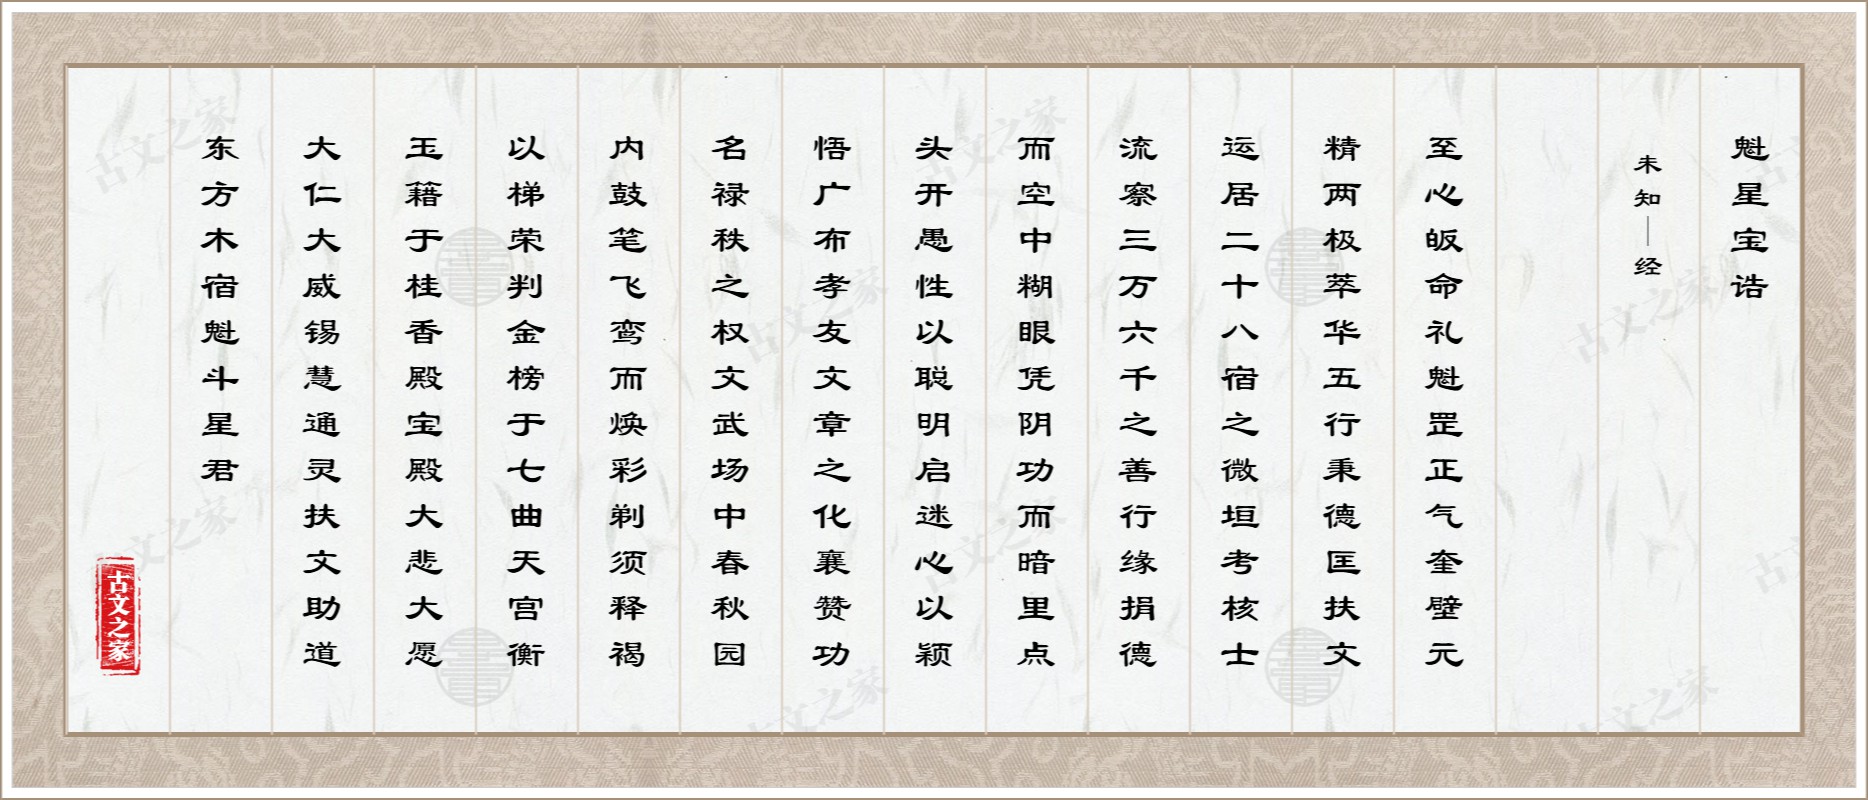 魁星宝诰
未知—经
至心皈命礼魁罡正气奎壁元
精两极萃华五行秉德匡扶文
运居二十八宿之微垣考核士
流察三万六千之善行缘捐德
而空中糊眼凭阴功而暗里点
头开愚性以聪明启迷心以颖
悟广布孝友文章之化襄赞功
名禄秩之权文武场中春秋园
内鼓笔飞鸾而焕彩剃须释褐
以梯荣判金榜于七曲天宫衡
玉藉于桂香殿宝殿大悲大愿
大仁大威锡慧通灵扶文助道
东方木宿魁斗星君
古文之家